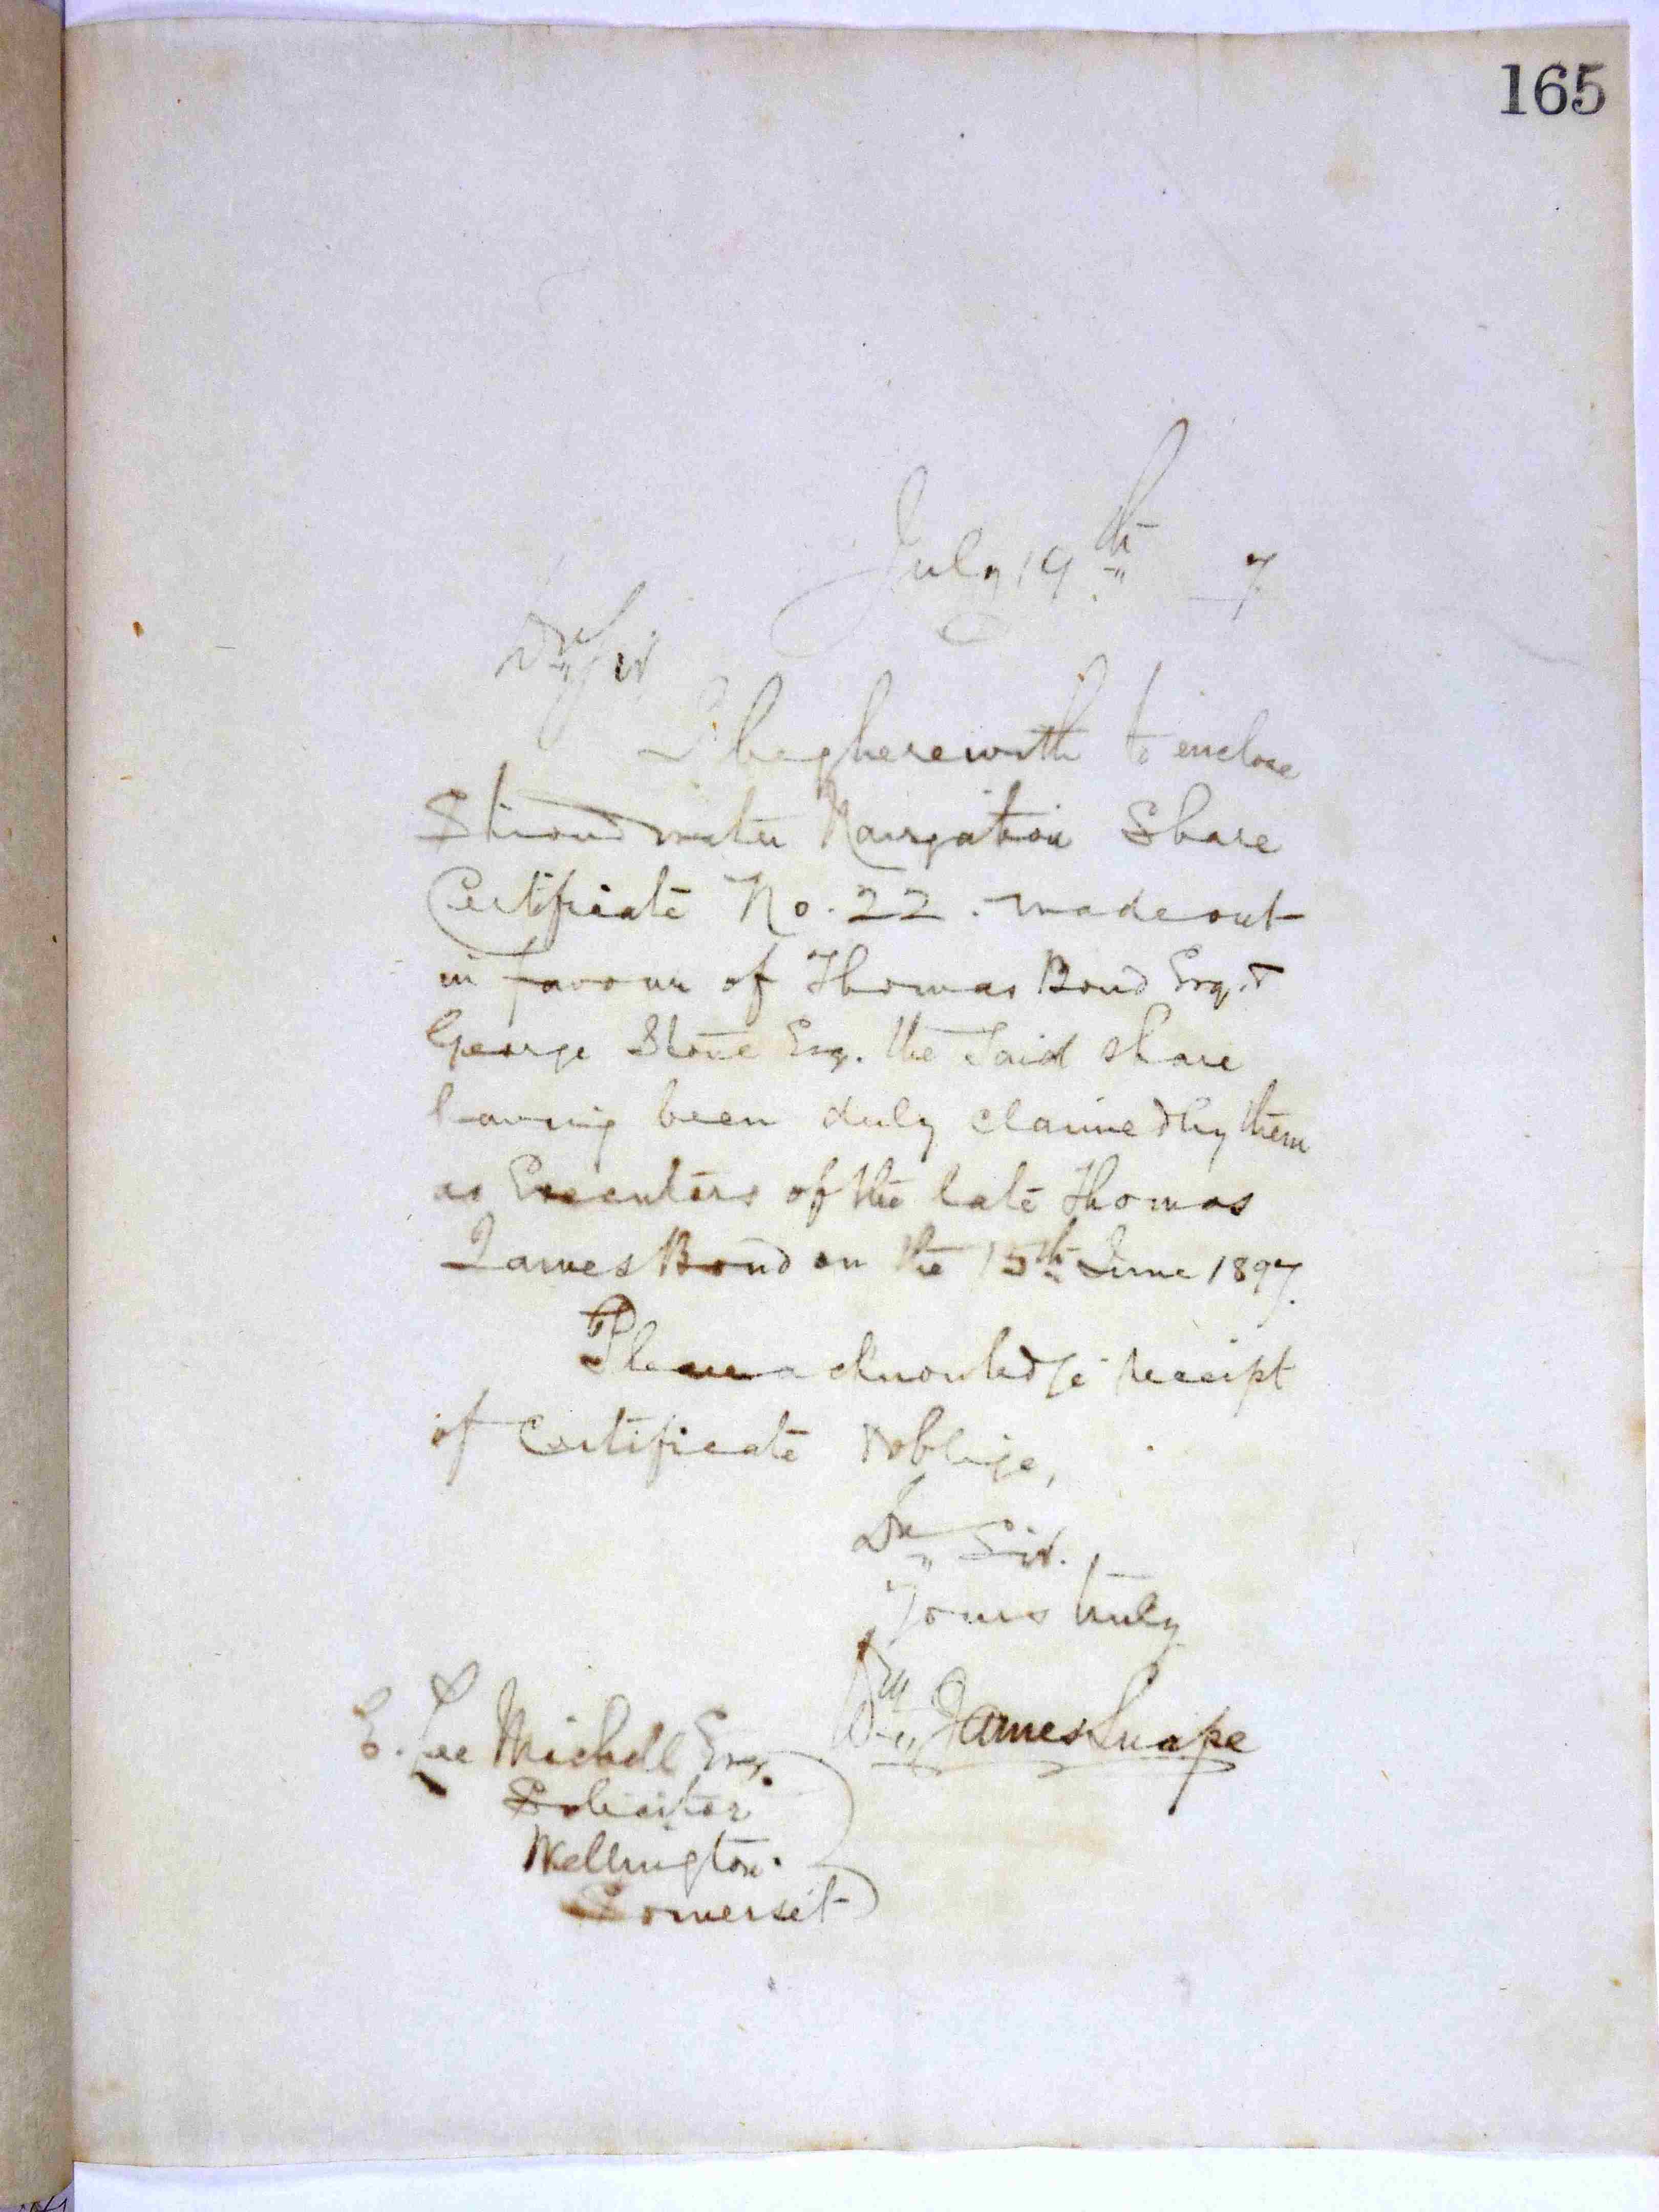 165
July 19th 7
Dr Sir
I beg herewith to enclose
Stroudwater Navigation Share
Certificate No. 22. made out
in favour of Thomas Bond Esq. &
George Stone Esq. the said share
having been duly claimed by them
as Executors of the late Thomas
James Bond on the 15th June 1897.
Please acknowledge receipt
of Certificate & oblige,
Dr Sir.
Yours truly
Wm James Snape
E. Lee Michell Esq.
Solicitor
Wellington.
Somerset